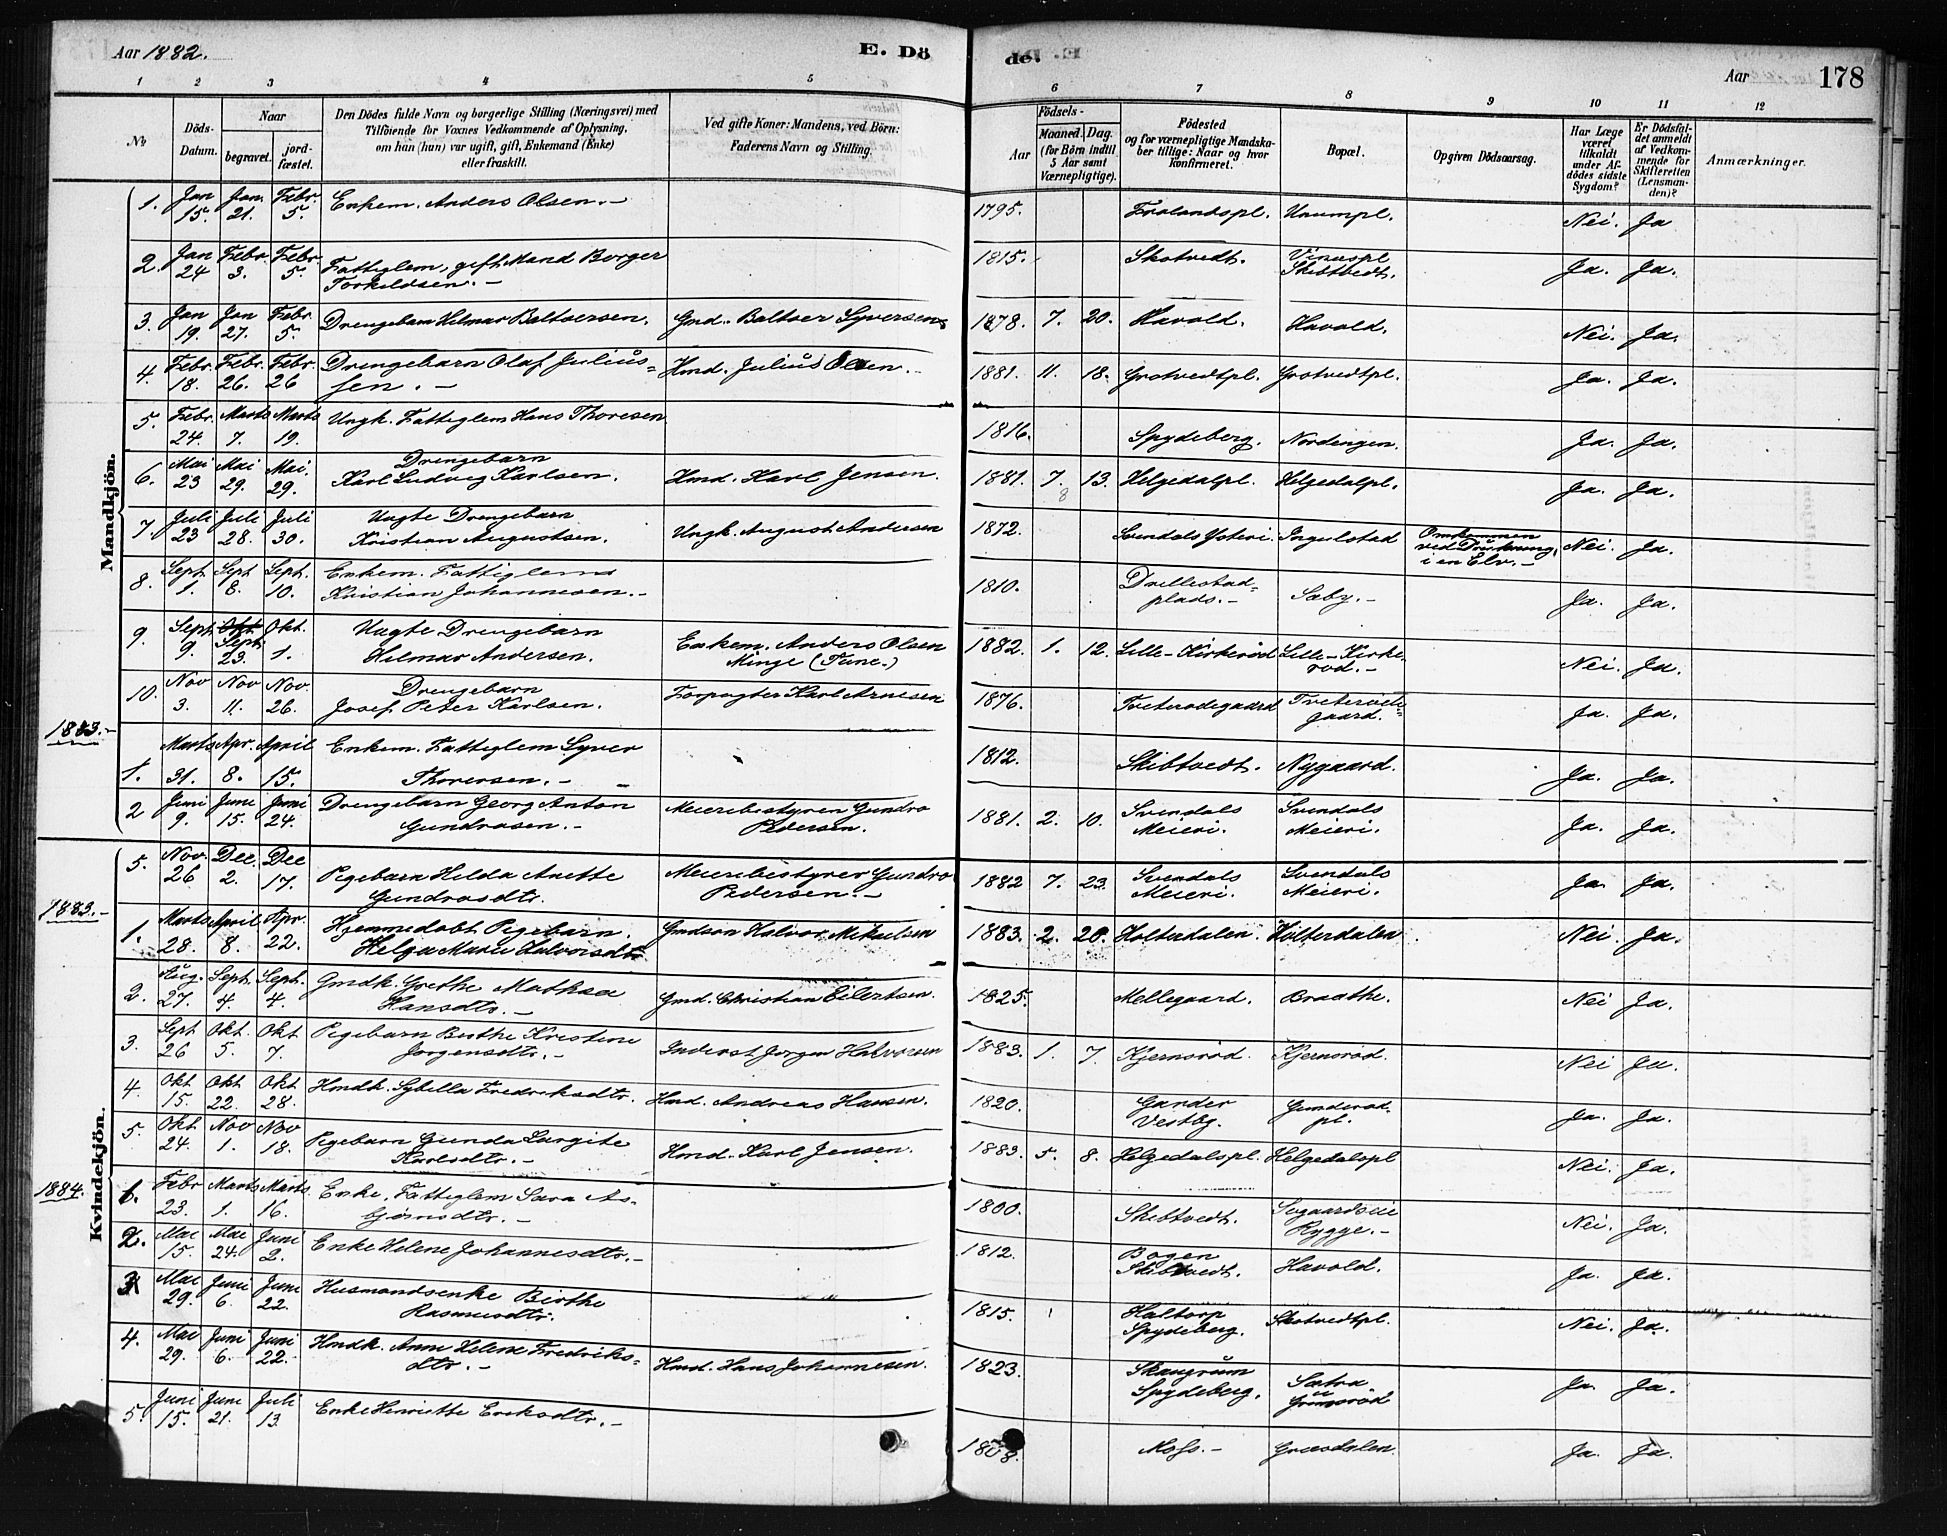 Aar 1882.
E. Dö
de.
Aar
178
1 2 3 4 5
6 7 8 9 10 11 12
№
Döds-
Datum.
Naar
begravet.
jord-
fæstet.
Den Dödes fulde Navn og borgerlige Stilling (Næringsvei) med
Tilföiende for Voxnes Vedkommende af Oplysning,
om han (hun) var ugift, gift, Enkemand (Enke)
eller fraskilt.
Ved gifte Koner: Mandens, ved Börn:
Faderens Navn og Stilling.
Födsels-
Aar
Maaned. Dag.
(for Börn indtil
5 Aar samt
Værnepligtige).
Födested
og for værnepligtige Mandska-
ber tillige: Naar og hvor
konfirmeret.
Bopæl.
Opgiven Dödsaarsag.
Har Læge
været
tilkaldt
under Af-
dödes sidste
Sygdom?
Er Dödsfal-
det anmeldt
af Vedkom-
mende for
Skifteretten
(Lensman-
den)?
Anmærkninger.
Mandkjön.
1. Jan 15. Jan. 21. Febr. 5. Enkem. Anders Olsen. — 1795. Frolandspl. Unumpl. Nei. Ja
2. Jan 24 Febr. 3. Febr. 5. Fattiglem, gift Mand Borger
Torkildsen. — 1815. Skotvedt. Skibtvedt. Ja. Ja.
3. Jan 19. Jan 27. Febr. 5. Drengebarn Hilmar Baltsersen. Gmd. Baltser Syversen. 1878. 7. 20. Havold. Havold. Nei. Ja.
4. Febr. 18. Febr. 26. Febr. 26 Drengebarn Olaf Julius=
sen. — Hmd. Julius Olsen. 1881. 11. 18. Grotvedtpl. Grotvedtpl. Ja. Ja.
5. Febr. 24. Marts 7. Marts 19. Ungk. Fattiglem Hans Thoresen 1816. Spydeberg. Nordengen. Ja. Ja.
6. Mai 23 Mai 29. Mai. 29. Drengebarn
Karl Ludvig Karlsen. Hmd. Karl Jensen. 1881. 7. 8 13. Helgedalpl. Helgedalpl. Ja. Ja.
7. Juli 23 Juli 28. Juli 30. Uægte Drengebarn
Kristian Augustsen. Ungk. August Andersen 1872. Svendals Ysteri. Ingulstad Omkommen
ved Drukning
i en Elv. — Nei. Ja.
8. Sept. 1. Sept 6. Sept. 10. Enkem. Fattiglem
Kristian Johannesen. — 1810. Drillestad=
plads. — Sæby. — Ja. Ja.
9. Sept. 9. Okt Sept. 23. Okt. 1. Uægte Drengebarn
Hilmar Andersen. Enkem. Anders Olsen
Minge (Tune.) 1882. 1. 12. Lille-Kirkerød Lille-Kirke-
rød. — Nei. Ja.
10. Nov 3. Nov 11. Nov. 26. Drengebarn
Josef Peter Karlsen. Forpagter Karl Arnesen 1876. Tveterødegaard Tveterøde=
gaard. Ja. Ja.
1883. —
1. Marts 31. Apr. 8. April 15. Enkem. Fattiglem Syver
Thoresen. — 1812. Skibtvedt. Nygaard. Ja. Ja.
2 Juni 9. Juni 15. Juni 24. Drengebarn Georg Anton
Gundrosen. — Meieribestyrer Gundro
Pedersen. 1881. 2. 10. Svendals
Meieri. Svendals
Meieri. Ja. Ja.
Kvindekjön.
5. Nov. 26 Dec. 2. Dec 17. Pigebarn Helda Anette
Gundrosdtr. Meieribestyrer Gundro
Pedersen. — 1882 7. 23. Svendals
Meieri. Svendals
Meieri. Ja. Ja.
1883. —
1. Marts 28. April 8. Apr. 22. Hjemmedøbt Pigebarn.
Helga Marie Halvorsdtr Gmdsøn Halvor Mikaelsen 1883. 2. 20. Holterdalen. Holterdalen Nei. Ja.
2. Aug. 27. Sept. 4. Sept. 4. Gmdk. Grethe Mathea
Hansdtr. — Gmd. Christian Eilertsen. 1825. Mellegaard. Braathe. Nei Ja.
3. Sept. 26 Okt. 5. Okt 7. Pigebarn Berthe Kristine
Jørgensdtr. — Inderst Jørgen Halvorsen 1883. 1. 7. Kjernsrød. Kjernsrød. Nei Ja.
4 Okt 15. Okt 22. Okt 28. Hmdk. Sybilla Fredriksdtr. Hmd. Andreas Hansen. 1820. Gander
Vestby. Gunderød.
pl. Ja. Ja.
5. Okt 24. Nov 1. Nov 18. Pigebarn Gunda Largite
Karlsdtr. — Hmd. Karl Jensen. 1883. 5. 8. Helgedalspl. Helgedalspl Nei. Ja.
1884.
1. Febr 23. Marts 1. Marts 16. Enke. Fattiglem Sara As-
bjørnsdtr. — 1800. Skibtvedt. Rygge. — Nei. Ja.
2. Mai 15. Mai 24. Juni 2. Enke Helene Johannesdtr. — 1812. Bogen
Skibtvedt. Havold. Ja. Ja.
3 Mai 29. Juni 6. Juni 22. Husmandsenke Birthe
Rasmusdtr. 1815. Haltorp
Spydeberg. Skotvedtpl. Nei. Ja.
4. Mai 29. Juni 6. Juni 22. Hmdk. Ann Helene Fredriks=
dtr. — Hmd. Hans Johannesen. 1823. Skaugrum
Spydeberg. Sætra
Grimsrød Ja. Ja.
5. Juni 15. Juni 21. Juli 13. Enke Henriette Eriksdtr. — 1808. Moss. — Græsdalen. Ja. Ja.